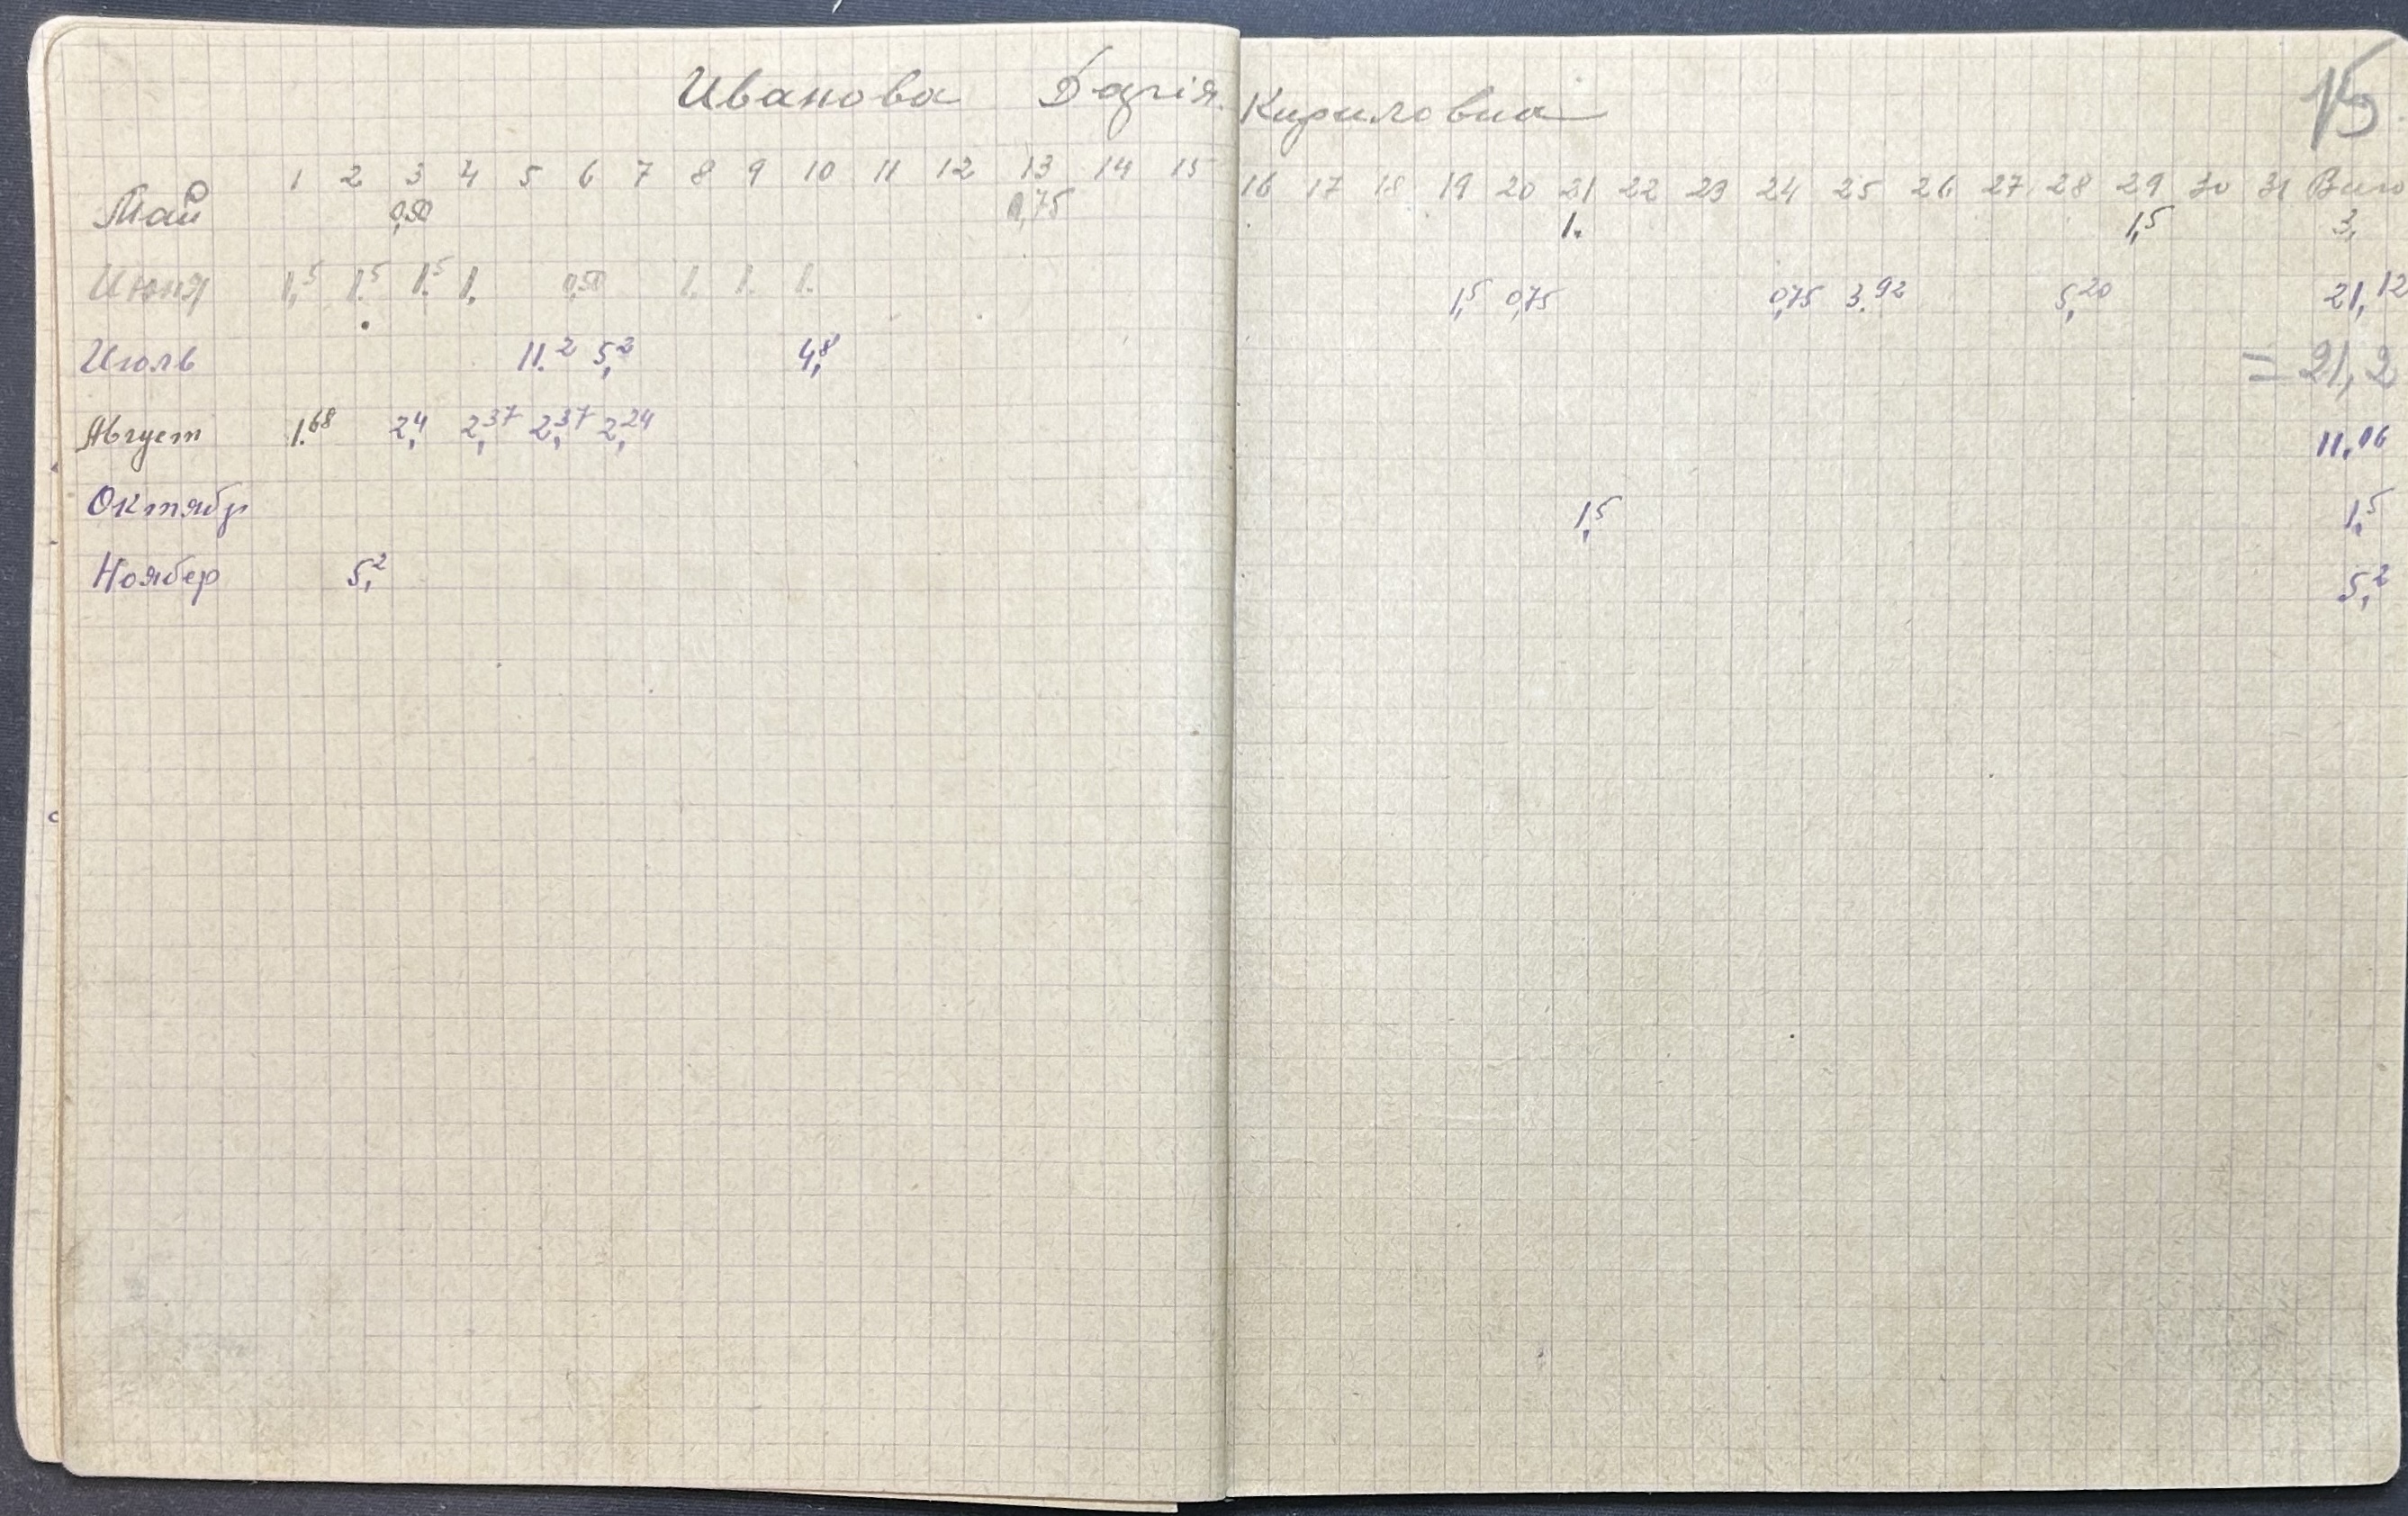 Иванова Дарія Кириловна 15.
1 2 3 4 5 6 7 8 9 10 11 12 13 14 15 16 17 18 19 20 21 22 23 24 25 26 27 28 29 30 31
Май 0,50 0,75 1. 1,5 3,
Июня 1,5 1,5 1,5 1, 0,50 1. 1. 1. 1,5 0,75 0,75 3.92 5,20 21,12
Июль 11.2 5,2 4,8 = 21,2
Август 1.68 2,4 2,37 2,37 2,24 11,06
Октябр 1,5 1,5
Ноябер 5,2 5,2